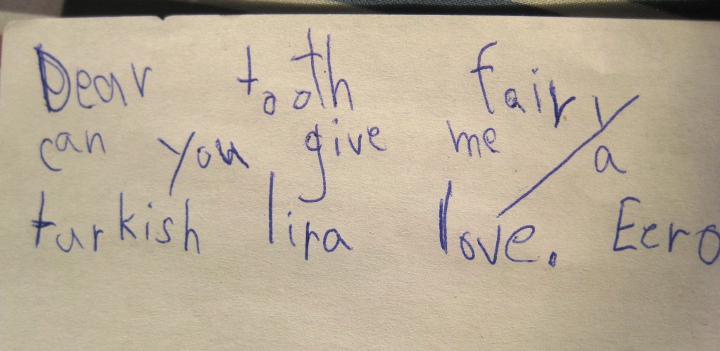 Dear tooth fairy
can you give me a
turkish lira love. Eero